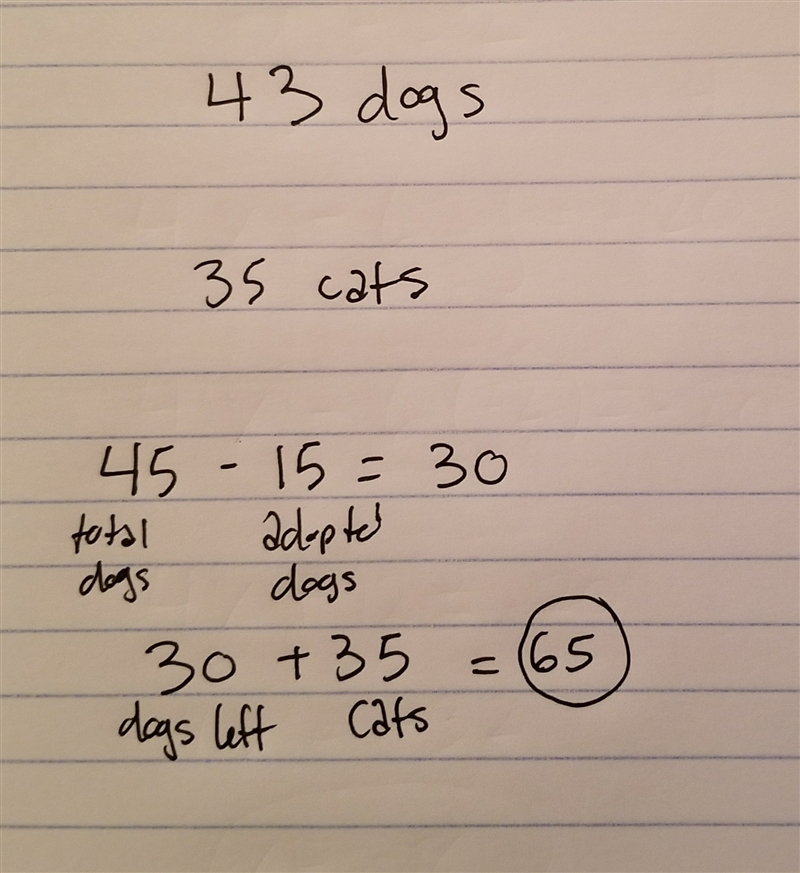 43 dogs
35 cats
45 - 15 = 30
total adopted
dogs dogs
30 + 35 = 65
dogs left cats